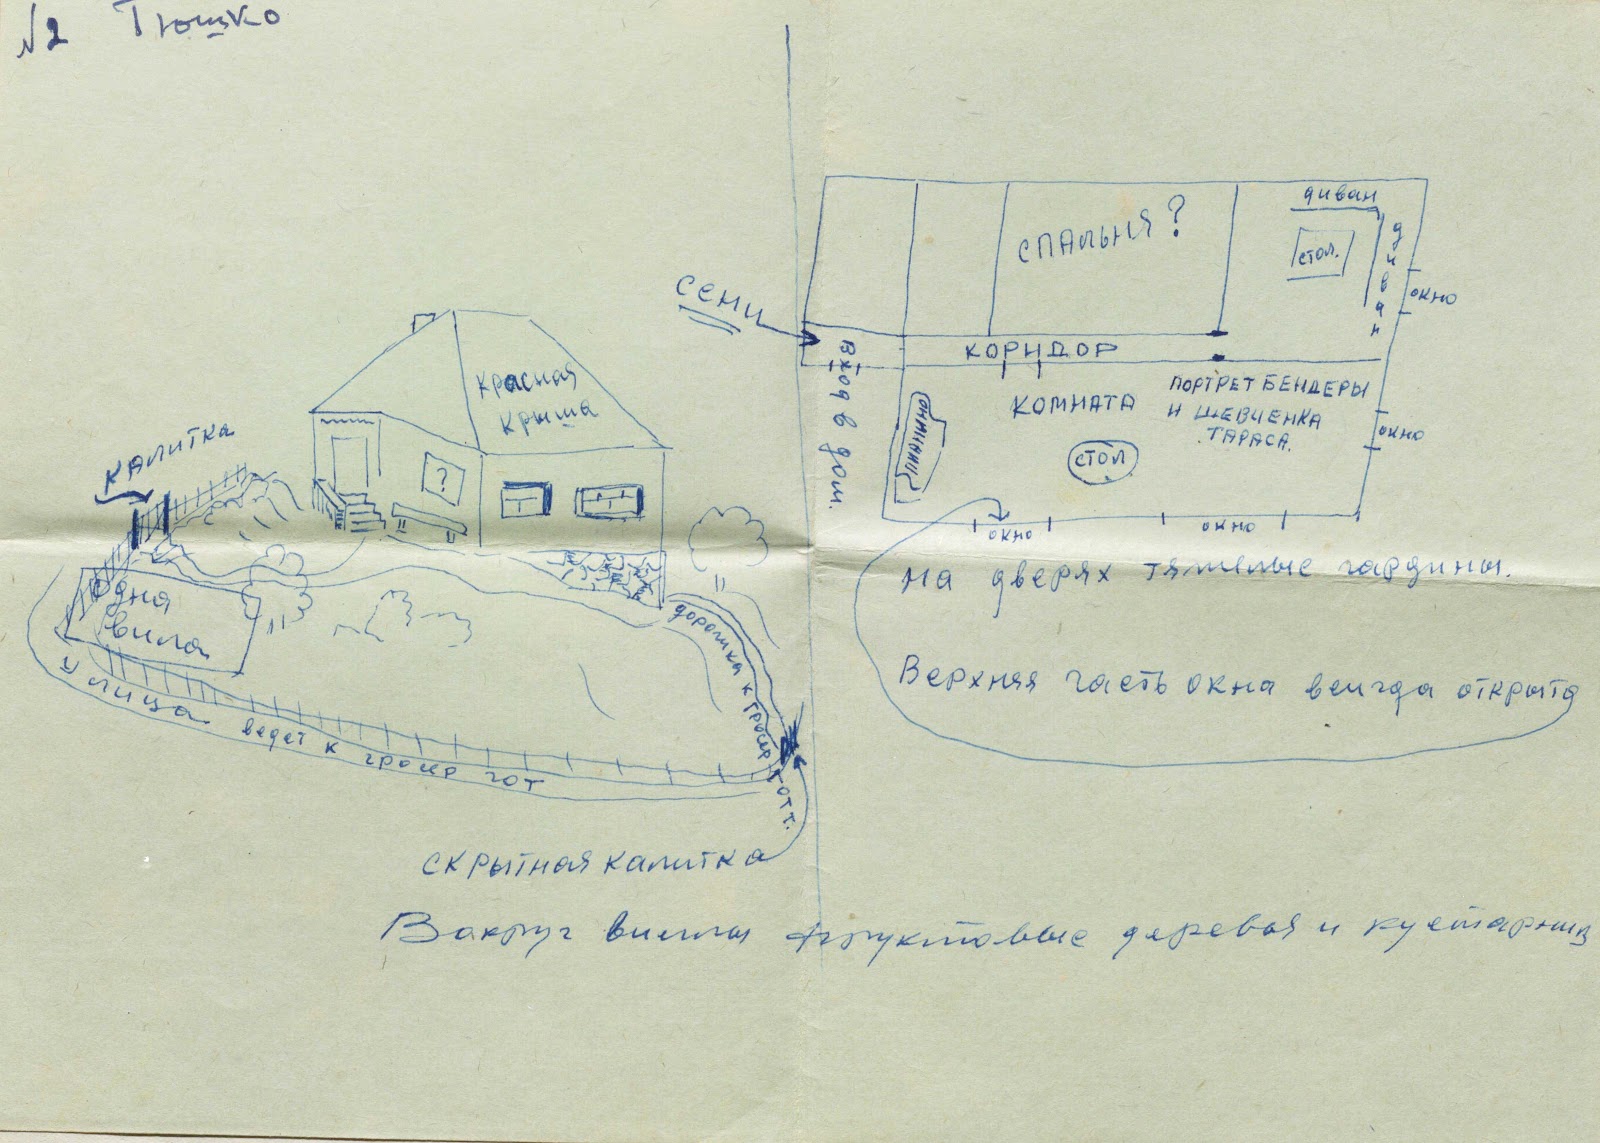 №2 Тюшко
КАЛИТКА
Красная
Крыша
?
Одна
вила
Улица ведет к гросер гот
дорожка к гросер готт.
СКРЫТНАЯ КАЛИТКА
Вакруг виллы фруктовые деревья и кустарник
СЕНИ
Вход в дом.
СПАЛЬНЯ?
диван
диван
стол.
окно
КОРИДОР
КОМНАТА
ПОРТРЕТ БЕНДЕРЫ
И ШЕВЧЕНКА
ТАРАСА.
СТОЛ
окно
окно
окно
на дверях тяжелые гардины.
Верхняя часть окна всигда открыта